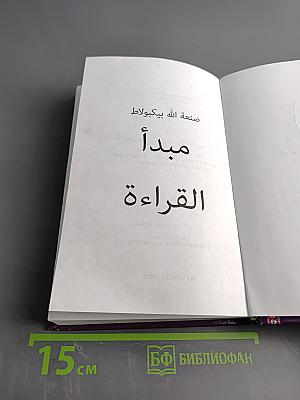 صنعة الله بيكبولاط
مبدأ
القراءة
15 см
БФ БИБЛИОФАН